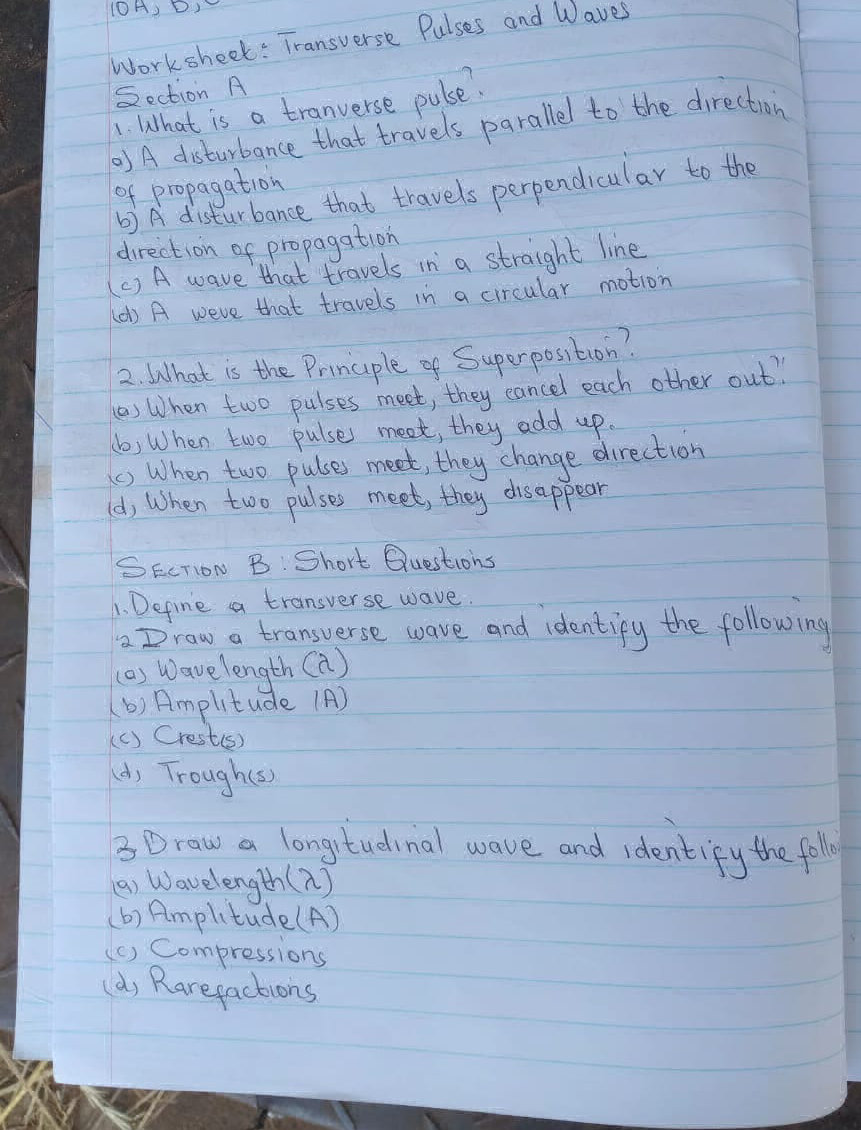 10A, B, C
Worksheet: Transverse Pulses and Waves
Section A
1. What is a tranverse pulse?
a) A disturbance that travels parallel to the direction
of propagation
b) A disturbance that travels perpendicular to the
direction of propagation
(c) A wave that travels in a straight line
(d) A weve that travels in a circular motion
2. What is the Principle of Superposition?
(a) When two pulses meet, they cancel each other out."
(b) When two pulses meet, they add up.
(c) When two pulses meet, they change direction
(d) When two pulses meet, they disappear
SECTION B: Short Questions
1. Define a transverse wave.
2 Draw a transverse wave and identify the following
(a) Wavelength (λ)
(b) Amplitude (A)
(c) Crest(s)
(d) Trough(s)
3 Draw a longitudinal wave and identify the follo
(a) Wavelength (λ)
(b) Amplitude (A)
(c) Compressions
(d) Rarefactions